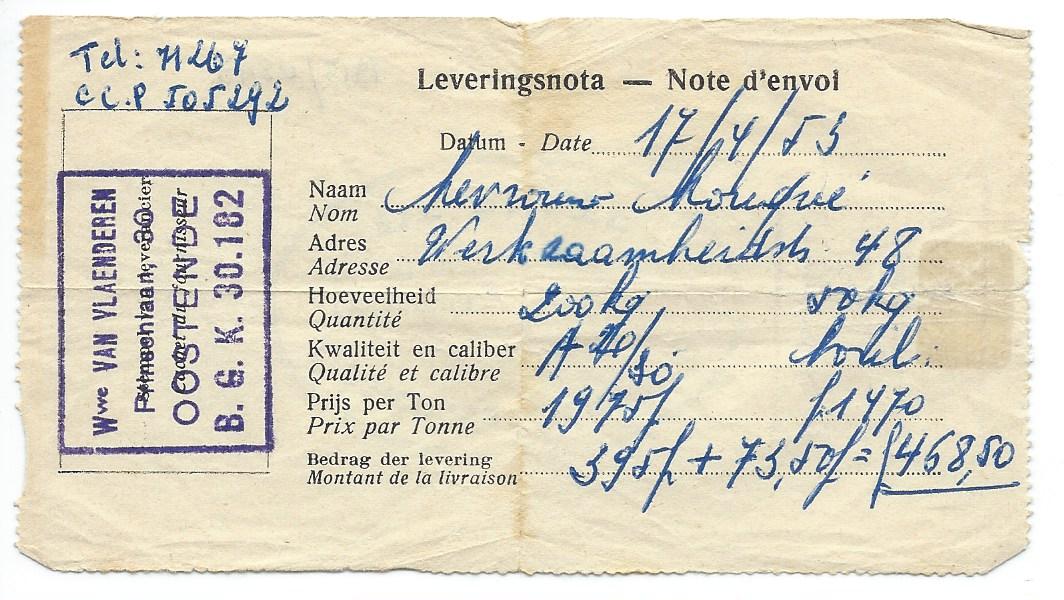 Tel: 71267
CCP 505292
Leveringsnota — Note d'envoi
Datum - Date 17/4/53
Naam
Nom
Mevrouw
Adres
Adresse
Werkzaamheidstr 48
Hoeveelheid
Quantité
200 kg 50 kg
Kwaliteit en caliber
Qualité et calibre
A
Prijs per Ton
Prix par Tonne
1975f f1470
Bedrag der levering
Montant de la livraison
395f + 73,50f = f 468,50
Wwe VAN VLAENDEREN
OOSTENDE
B. G. K. 30.182